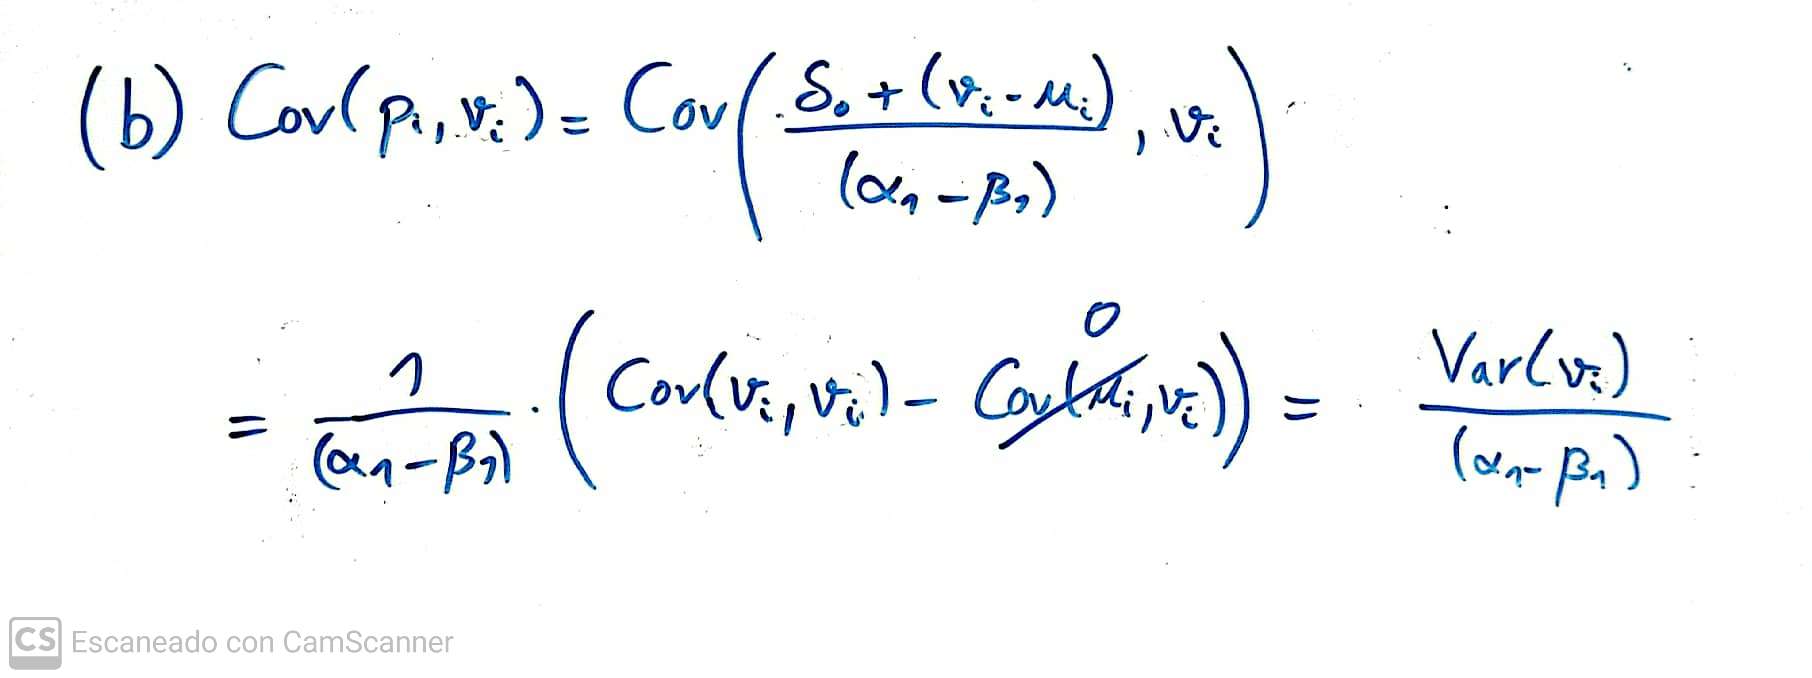 (b) Cov(pᵢ, vᵢ) = Cov( (δ₀ + (vᵢ - μᵢ)) / (α₁ - β₁) , vᵢ )
= 1 / (α₁ - β₁) · ( Cov(vᵢ, vᵢ) - Cov(μᵢ, vᵢ) 0 ) = Var(vᵢ) / (α₁ - β₁)
CS Escaneado con CamScanner